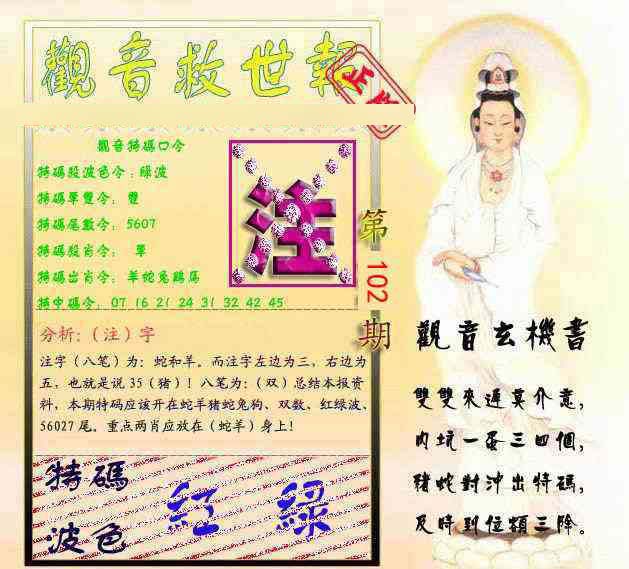 觀音救世報
觀音特碼口令
特碼段波色令：綠波
特碼單雙令：雙
特碼尾數令：5607
特碼段肖令：單
特碼出肖令：羊蛇兔鷄馬
特中碼令：07 16 21 24 31 32 42 45
注
第
102
期
分析:（注）字
注字（八笔）为：蛇和羊。而注字左边为三，右边为
五，也就是说 35（猪）！八笔为：（双）总结本报资
料，本期特码应该开在蛇羊猪蛇兔狗、双数、红绿波、
56027 尾。重点两肖应放在（蛇羊）身上！
特碼
波色
紅 綠
觀音玄機書
雙雙來遲莫介意，
內坑一蛋三四個，
豬蛇對沖出特碼，
及時到位類三降。